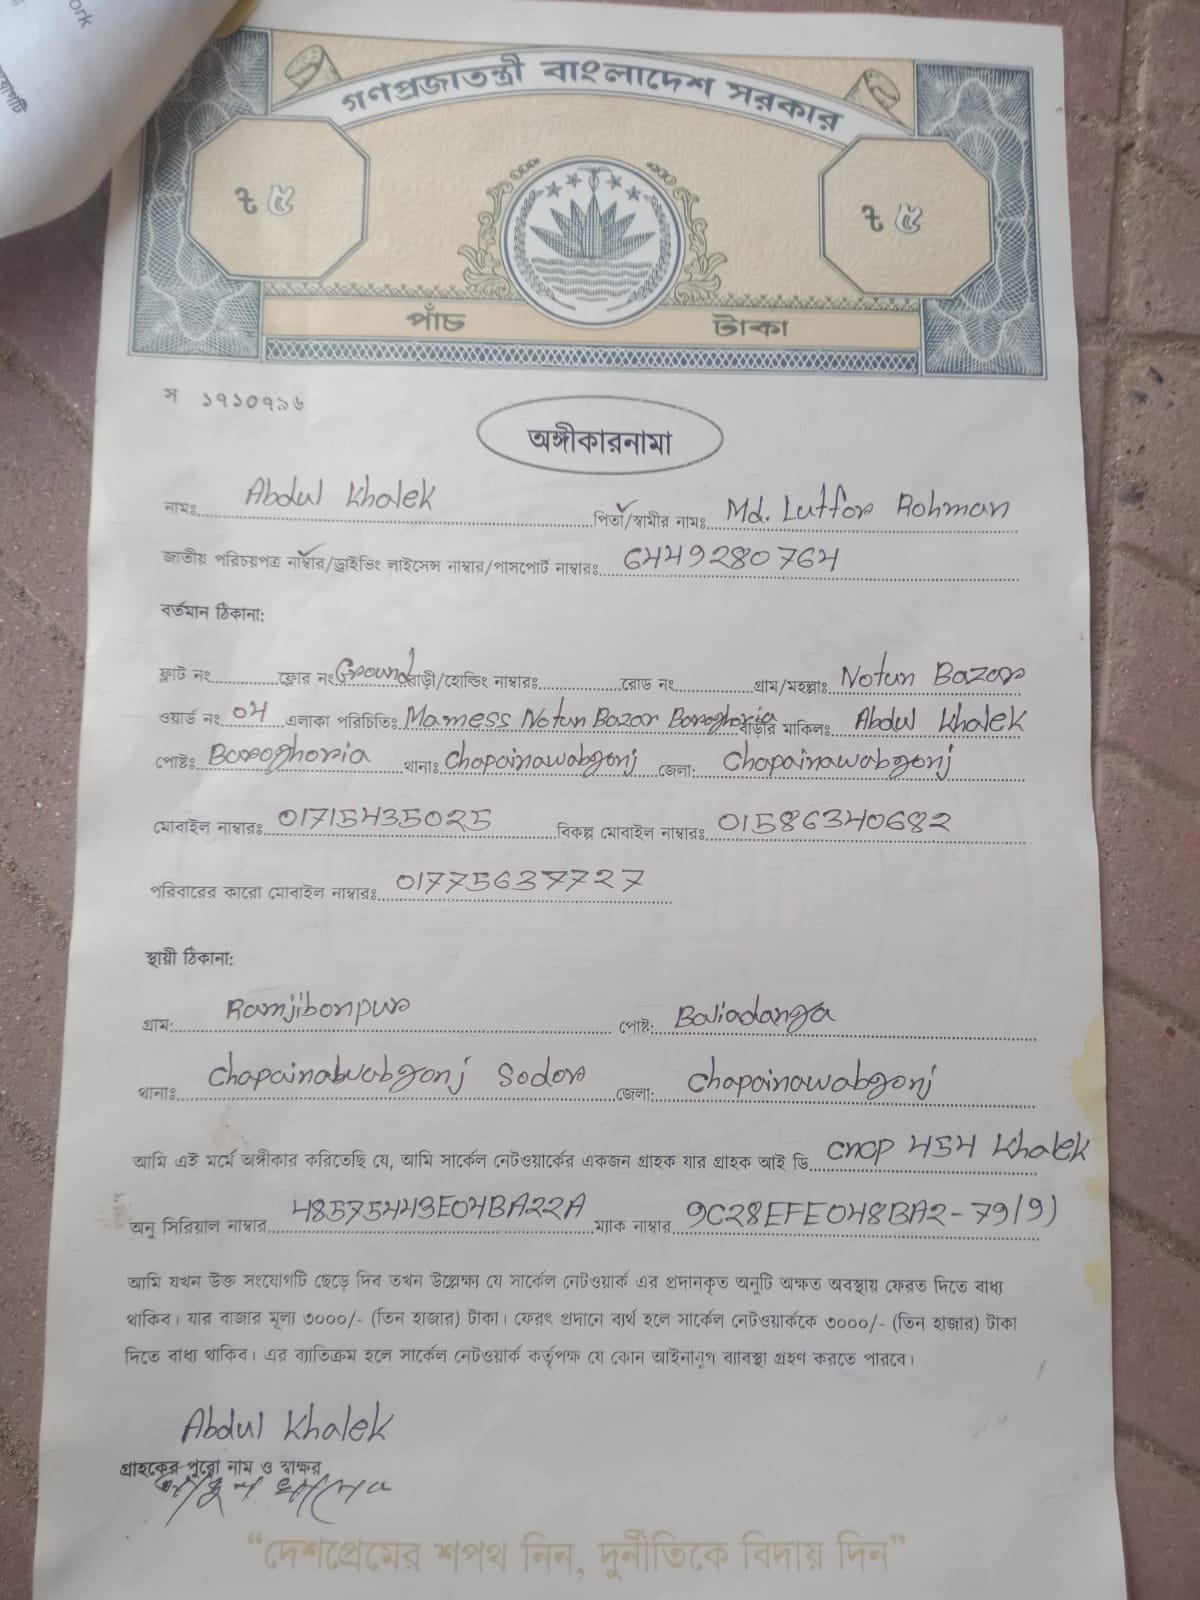 গণপ্রজাতন্ত্রী বাংলাদেশ সরকার
৳ ৫ ৳ ৫
পাঁচ টাকা
স ১৭১০৭৯৬
অঙ্গীকারনামা
নামঃ Abdul Khalek পিতা/স্বামীর নামঃ Md. Lutfor Rohman
জাতীয় পরিচয়পত্র নাম্বার/ড্রাইভিং লাইসেন্স নাম্বার/পাসপোর্ট নাম্বারঃ 6449280764
বর্তমান ঠিকানা:
ফ্লাট নং ফ্লোর নং Ground বাড়ী/হোল্ডিং নাম্বারঃ রোড নং গ্রাম/মহল্লাঃ Notun Bazar
ওয়ার্ড নং 04 এলাকা পরিচিতিঃ Mamess Notun Bazar Baroghoria বাড়ীর মাকিলঃ Abdul Khalek
পোষ্টঃ Baroghoria থানাঃ Chapainawabgonj জেলা: Chapainawabgonj
মোবাইল নাম্বারঃ 01715435025 বিকল্প মোবাইল নাম্বারঃ 01586340682
পরিবারের কারো মোবাইল নাম্বারঃ 01775637727
স্থায়ী ঠিকানা:
গ্রাম: Ramjibonpur পোষ্ট: Baliadanga
থানাঃ Chapainabwabgonj Sodor জেলা: Chapainawabgonj
আমি এই মর্মে অঙ্গীকার করিতেছি যে, আমি সার্কেল নেটওয়ার্কের একজন গ্রাহক যার গ্রাহক আই ডি cnop 454 Khalek
অনু সিরিয়াল নাম্বার 48575443E04BA22A ম্যাক নাম্বার 9C28EFE048BA2-79(9)
আমি যখন উক্ত সংযোগটি ছেড়ে দিব তখন উল্লেক্ষ্য যে সার্কেল নেটওয়ার্ক এর প্রদানকৃত অনুটি অক্ষত অবস্থায় ফেরত দিতে বাধ্য
থাকিব। যার বাজার মূল্য ৩০০০/- (তিন হাজার) টাকা। ফেরৎ প্রদানে ব্যর্থ হলে সার্কেল নেটওয়ার্ককে ৩০০০/- (তিন হাজার) টাকা
দিতে বাধ্য থাকিব। এর ব্যাতিক্রম হলে সার্কেল নেটওয়ার্ক কর্তৃপক্ষ যে কোন আইনানুগ ব্যাবস্থা গ্রহণ করতে পারবে।
Abdul Khalek
গ্রাহকের পুরো নাম ও স্বাক্ষর
“দেশপ্রেমের শপথ নিন, দুর্নীতিকে বিদায় দিন”